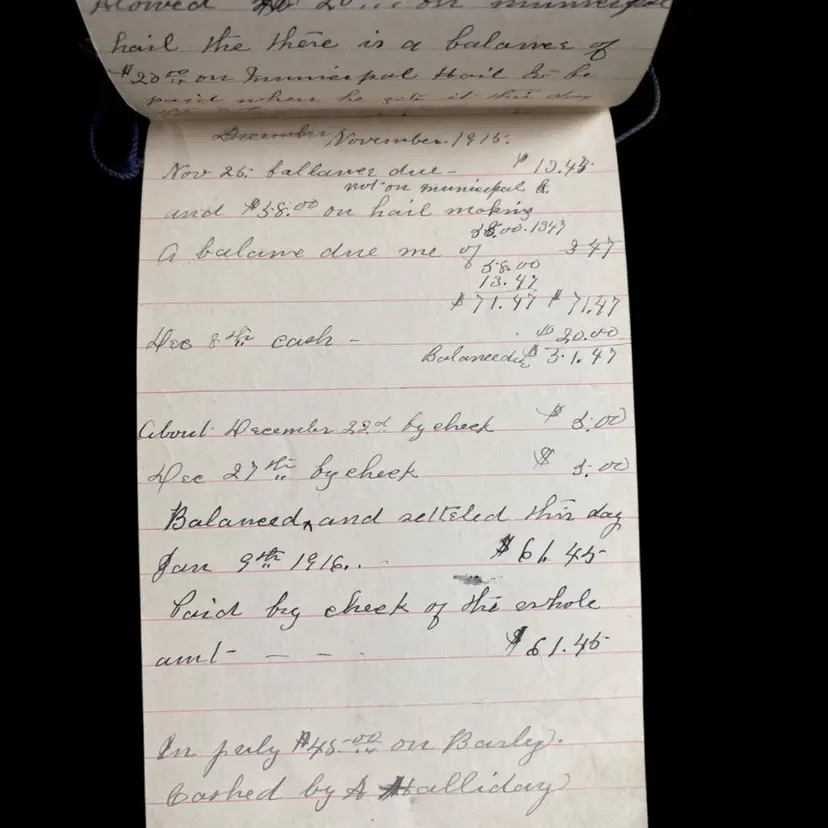 Alowed 20... on municipal
hail the there is a balance of
$20.00 on Municipal Hail to be
paid when he gets it this day
December, November 1915.
Nov 26. ballance due - $ 13.45
not on municipal &
and $58.00 on hail making
58.00-1347
A balane due me of 347
58.00
13.47
$71.47 $71.47
Dec 8th cash - $20.00
Balance due $51.47
About December 22d by check $ 5.00
Dec 27th by check $ 5.00
Balanced, and setteled this day
Jan 9th 1916.. $61.45
Paid by check of the whole
amt - - - - $61.45
In july $45.00 on Barly.
Cashed by A Halliday